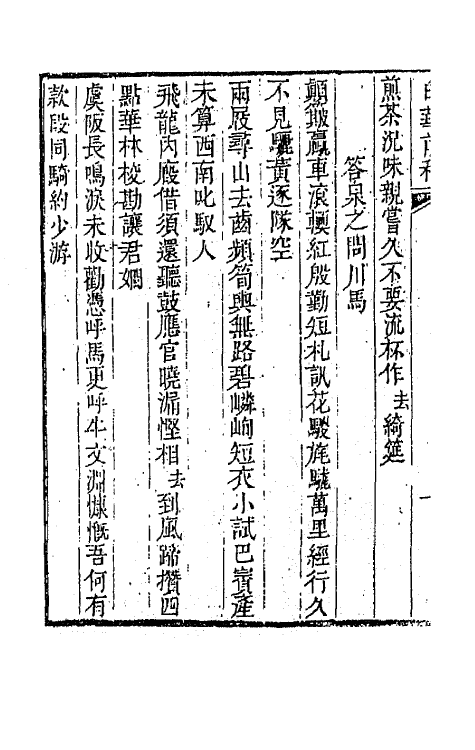 煎茶況味親嘗久不要流杯作去綺筵
答泉之問川馬
顛皷羸車滾輭紅殷勤短札訊花駿旄驍萬里經行久
不見驪黃逐隊空
兩屐尋山去齒頻筍輿無路碧嶙峋短衣小試巴賨產
未算西南叱馭人
飛龍內廄借須還聽鼓應官曉漏慳相去到風蹄攢四
點華林校勘讓君嫺
虞阪長鳴淚未收勸憑呼馬更呼牛文淵慷慨吾何有
款段同騎約少游
一